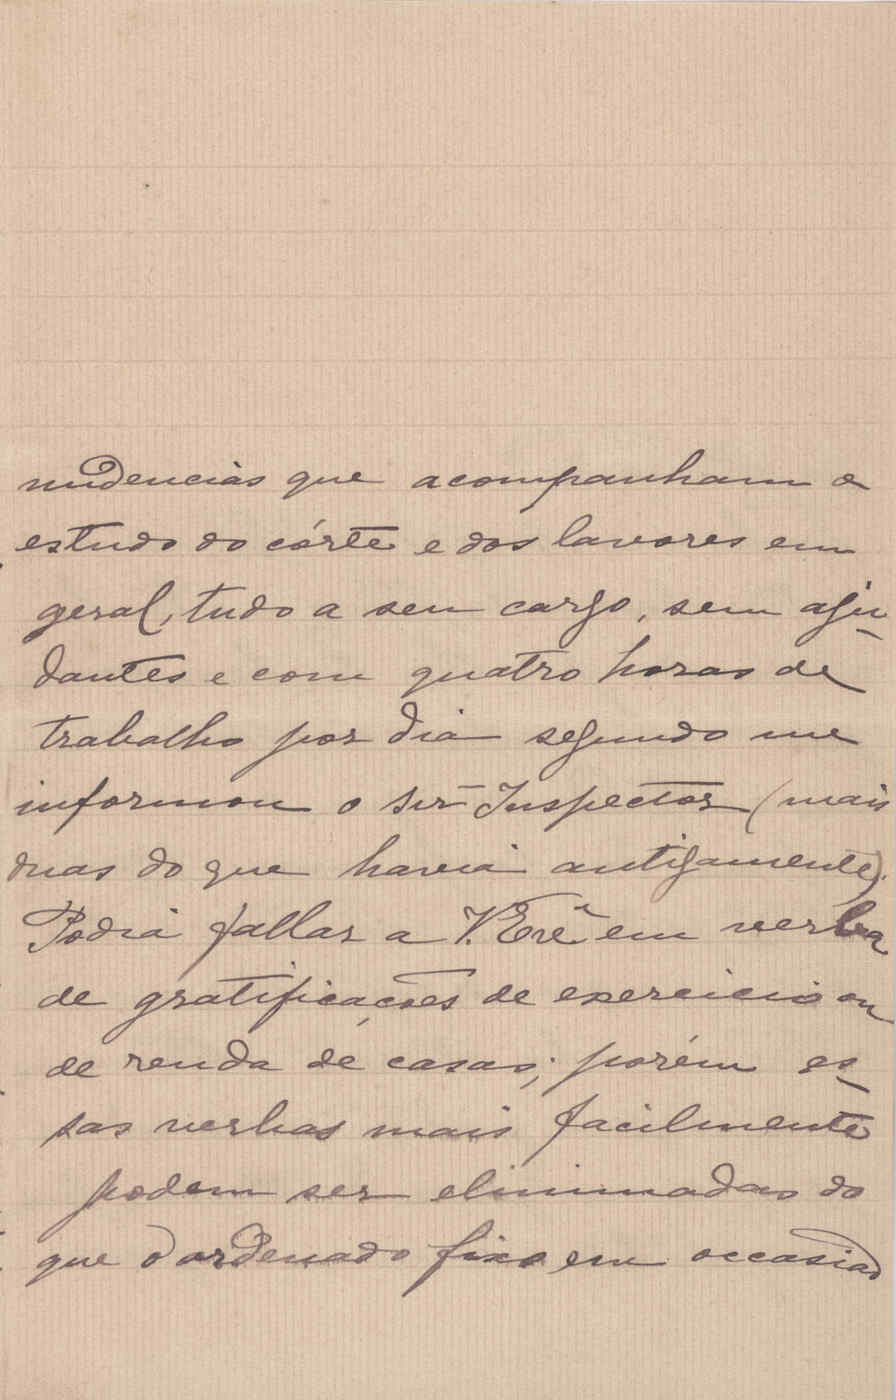 nudencias que acompanham o
estudo do córte e dos lavores em
geral, tudo a seu cargo, sem aju-
dantes e com quatro horas de
trabalho por dia segundo me
informou o snr Inspector (mais
duas do que havia antigamente).
Podia fallar a V. Exª em verba
de gratificações de exercicio ou
de renda de casas; porém es-
sas verbas mais facilmente
podem ser eliminadas do
que o ordenado fixo em occasião